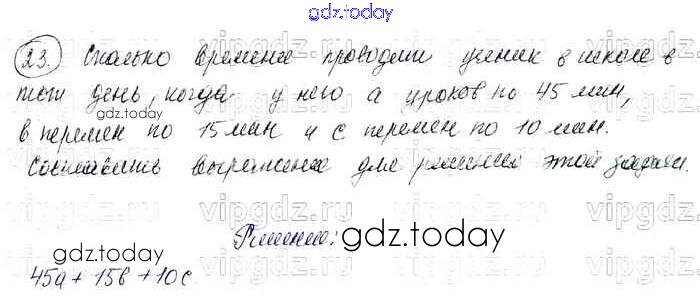 gdz.today
23. Сколько времени проводит ученик в школе в
тот день, когда у него а уроков по 45 мин,
в перемен по 15 мин и с перемен по 10 мин.
Составить выражение для решения этой задачи.
vipgdz.ru vipgdz.ru vipgdz.ru vipgdz.ru
Решение: gdz.today
gdz.today
45а + 15в + 10с